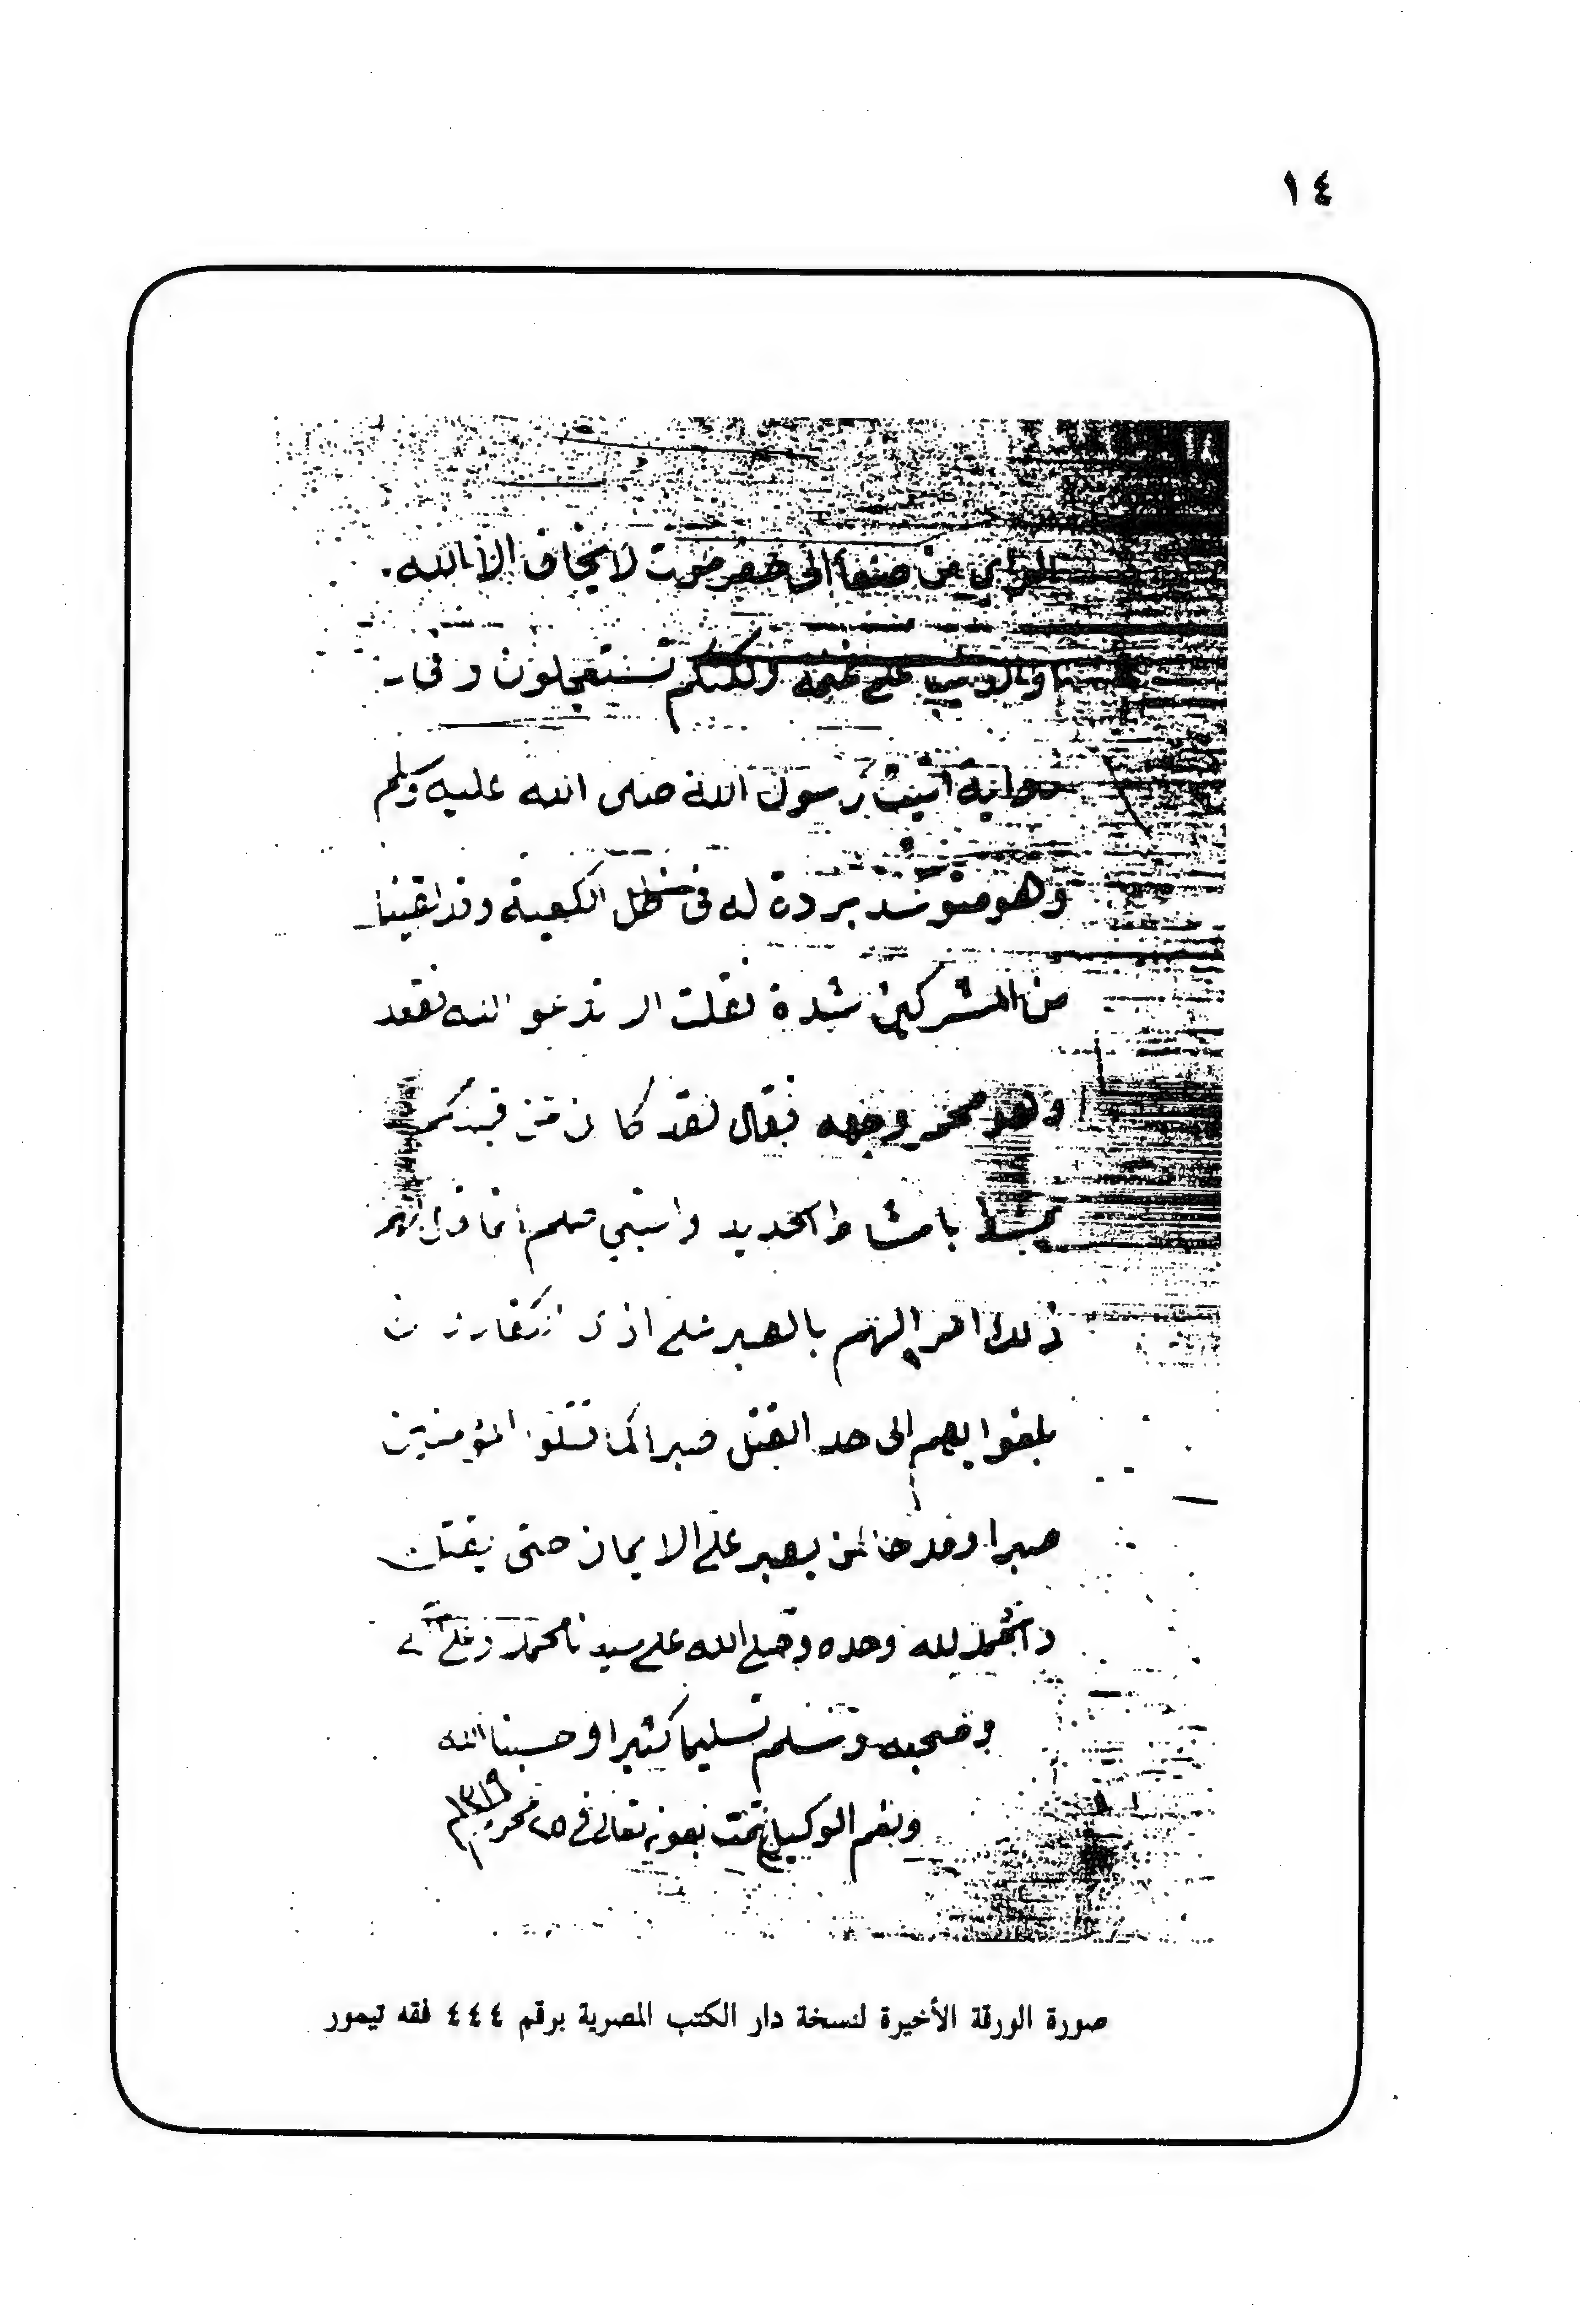 ١٤
من صنعا الى حضرموت لا يخاف الا الله.
على غنمه ولكنكم تستعجلون وفى
رواية اتيت رسول الله صلى الله عليه وسلم
وهو متوسد بردة له فى ظل الكعبة وقد لقينا
من المشركين شدة فقلت الا تدعو الله فقعد
وهو محمر وجهه فقال لقد كان من قبلكم
بامشاط الحديد
ذلك امر بالصبر على اذى الكفار وان
بلغوا بهم الى حد القتل صبرا كما قتلوا المؤمنين
صبرا يصبر على الايمان حتى يقتل
والحمد لله وحده وصلى الله على سيدنا محمد وعلى اله
وصحبه وسلم تسليما كثيرا وحسبنا الله
ونعم الوكيل تمت بعونه تعالى فى محرم
صورة الورقة الأخيرة لنسخة دار الكتب المصرية برقم ٤٤٤ فقه تيمور